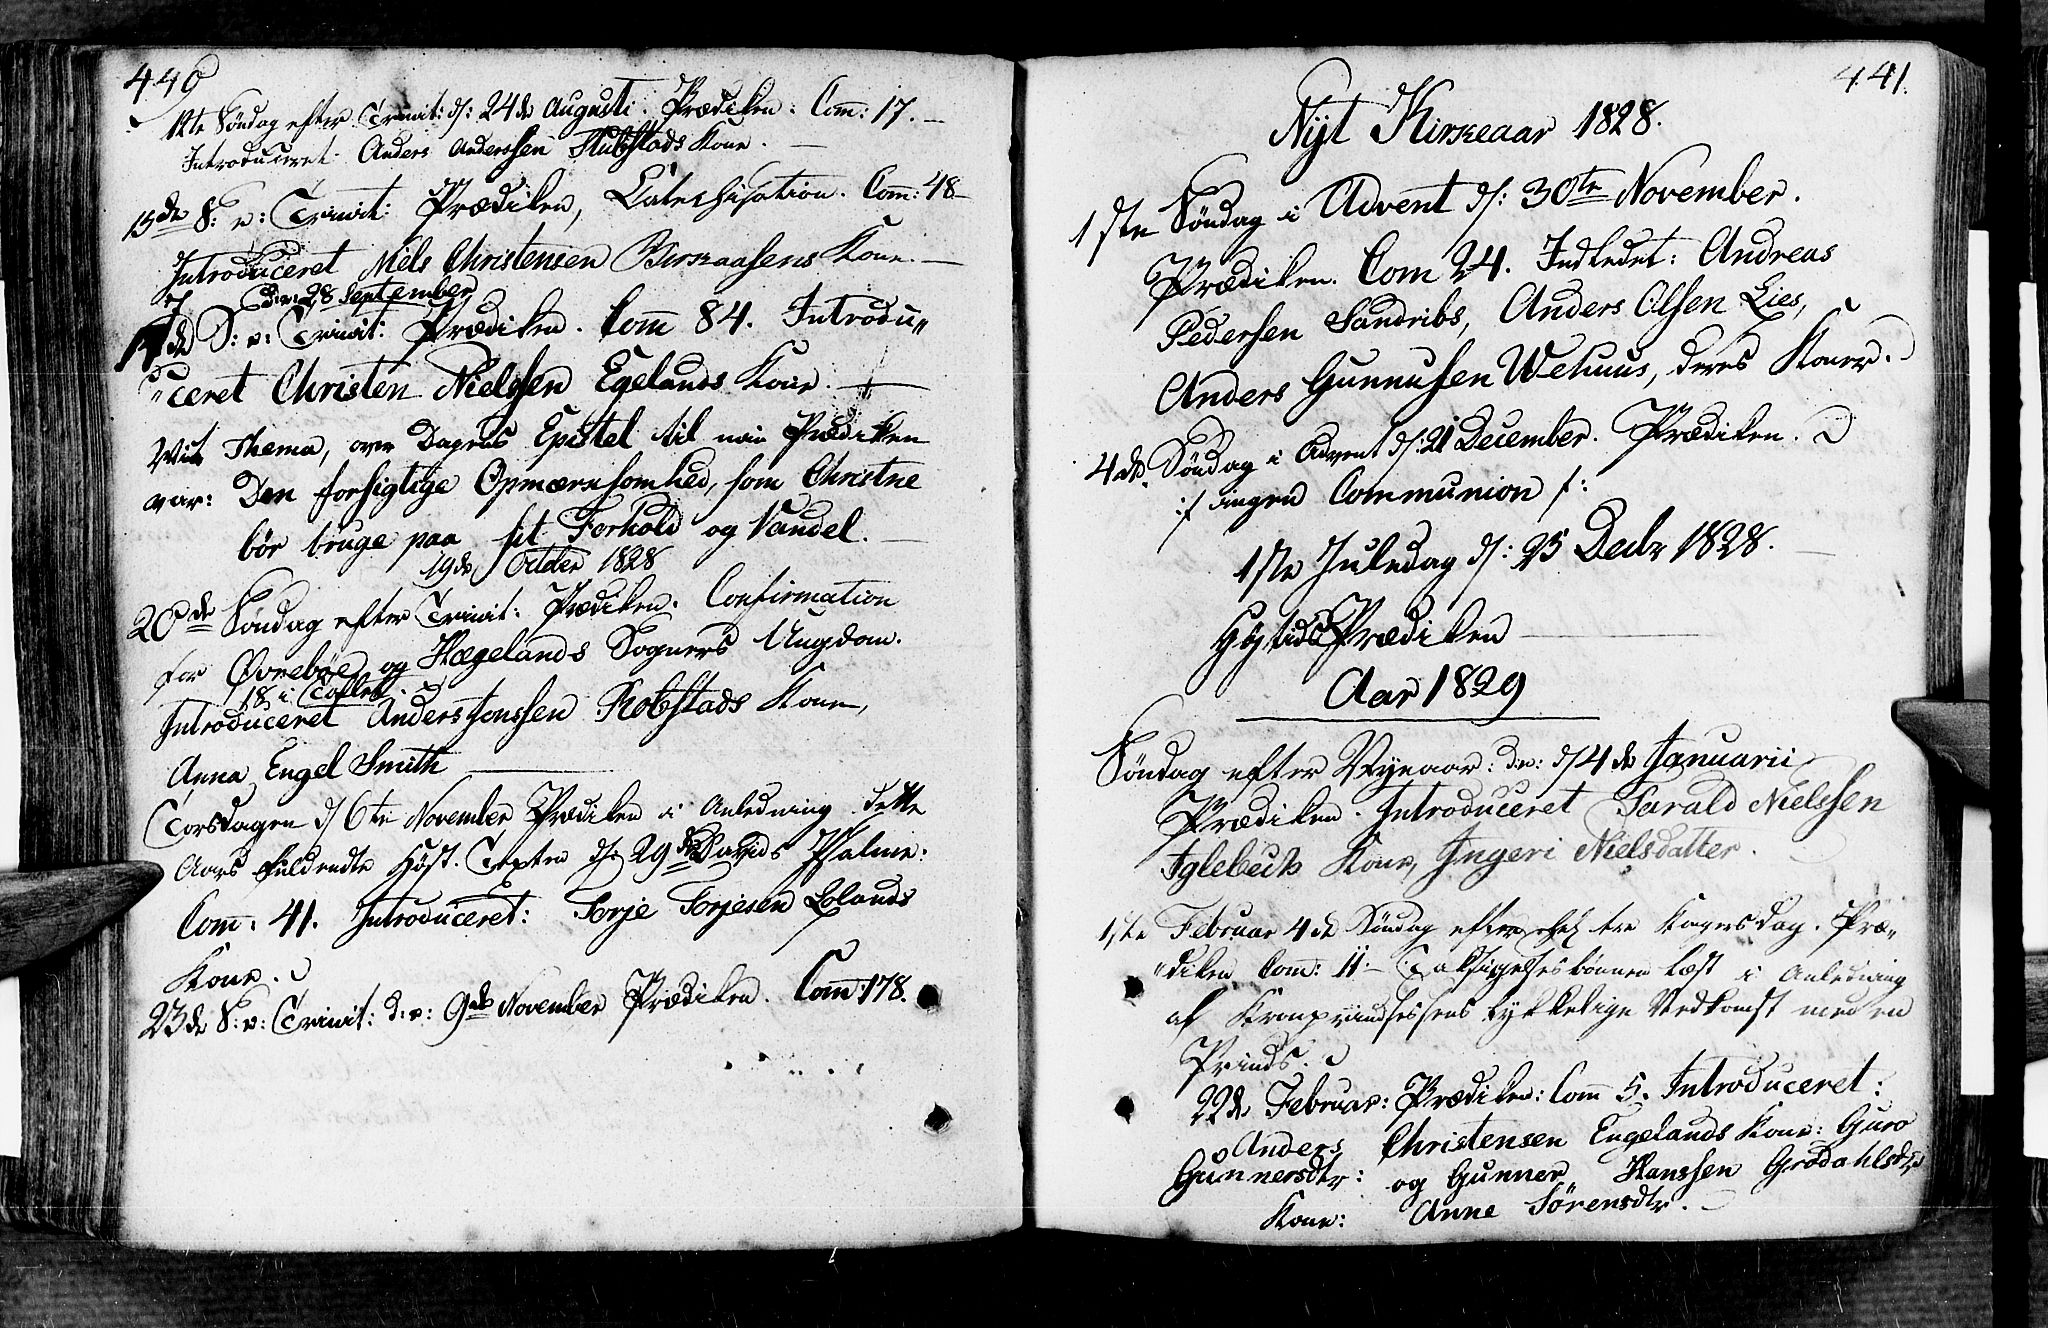 440
12te Søndag efter Trinit: d: 24de Augusti. Prædiken. Com: 17. –
Introduceret Anders Anderssen Stubstads Kone. –
15de S: e: Trinit: Prædiken, Catechisation. Com: 48 –
Introduceret Niels Christensen Birkaasens Kone. –
d: e: 28 September
17de S: e: Trinit: Prædiken. Com 84. Introdu„
„ceret Christen Nielssen Egelands Kone. –
Mit Thema, over Dagens Epistel til min Prædiken
var: Den forsigtige Opmærksomhed, som Christne
bør bruge paa sit Forhold og Vandel. –
19de October 1828
20de Søndag efter Trinit: Prædiken. Confirmation
for Øvrebøe og Hægelands Sogners Ungdom.
18 i Tallet.
Introduceret Anders Jonssen Robstads Kone,
Anna Engel Smith
Torsdagen d 6te November Prædiken i Anledning dette
Aars fuldendte Høst. Texten d: 29de Davids Psalme:
Com: 41. Introduceret: Torje Torjesen Lolands
Kone.
23de S: e: Trinit: d: e: 9de November Prædiken. Com: 178.
441.
Nyt Kirkeaar 1828.
1ste Søndag i Advent d: 30te November.
Prædiken. Com 24. Indledet: Andreas
Pedersen Sandribs, Anders Olsen Lies,
Anders Gunnusen Wehuus, deres Koner.
4de Søndag i Advent d: 21 December. Prædiken.
:/ ingen Communion /:
1ste Juledag d: 25 Decbr 1828. –
Høitids Prædiken
Aar 1829
Søndag efter Nyeaar: d: e: d 4de Januarii
Prædiken. Introduceret Tarald Nielssen
Iglebeks Kone, Ingeri Nielsdatter.
1ste Februar 4de Søndag efter hel: tre Kongers Dag. Præ„
„diken Com: 11 – Taksigelsesbønnen læst i Anledning
af Kronprindsessens lykkelige Nedkomst med en
Prinds.
22de Februar: Prædiken: Com 5. Introduceret:
Anders Christensen Engelands Kone: Guro
Gunnersdtr: og Gunner Hanssen Grødahls
Kone: Anne Sörensdtr.